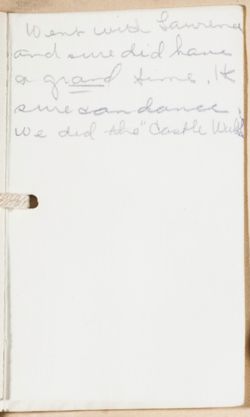 Went with Lawrence
and sure did have
a grand time. He
sure can dance.
We did the "Castle Walk